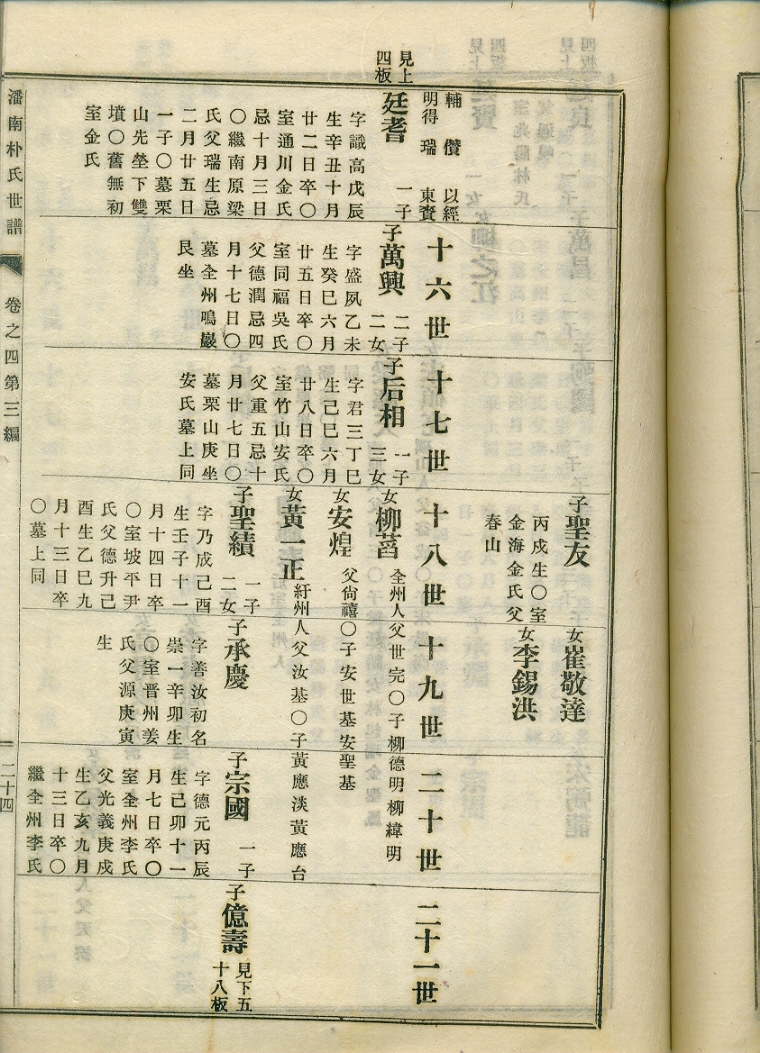 子聖友
丙戌生○室
金海金氏父
春山
女崔敬達
女李錫洪
見上
四板
輔償 以經
明得瑞 東賚
十六世
十七世
十八世
十九世
二十世
二十一世
廷耆 一子
字識高戊辰
生辛丑十月
廿二日卒○
室通川金氏
忌十月三日
○繼南原梁
氏父瑞生忌
二月廿五日
一子○墓栗
山先塋下雙
墳○舊無初
室金氏
子萬興 二子
二女
字盛夙乙未
生癸巳六月
廿五日卒○
室同福吳氏
父德潤忌四
月十七日○
墓全州鳴巖
艮坐
子后相 一子
三女
字君三丁巳
生己巳六月
廿八日卒○
室竹山安氏
父重五忌十
月廿七日○
墓栗山庚坐
安氏墓上同
女柳萻 全州人父世完○子柳德明柳緯明
女安煌 父尙禧○子安世基安聖基
女黃一正 紆州人父汝基○子黃應淡黃應台
子聖績 一子
二女
字乃成己酉
生壬子十一
月十四日卒
○室坡平尹
氏父德升己
酉生乙巳九
月十三日卒
○墓上同
子承慶
字善汝初名
崇一辛卯生
○室晋州姜
氏父源庚寅
生
子宗國 一子
字德元丙辰
生己卯十一
月七日卒○
室全州李氏
父光義庚戍
生乙亥九月
十三日卒○
繼全州李氏
子億壽 見下五
十八板
潘南朴氏世譜 卷之四第三編 二十四